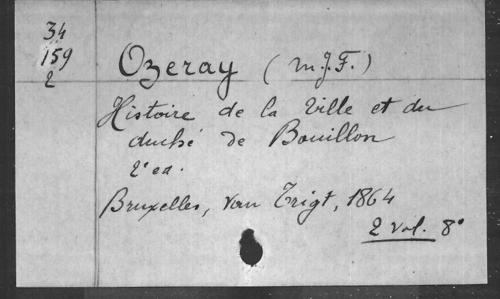 34
159
2
Ozeray (M.J.F.)
Histoire de la Ville et du
duché de Bouillon
2e ed.
Bruxelles, Van Trigt, 1864
2 vol. 8°